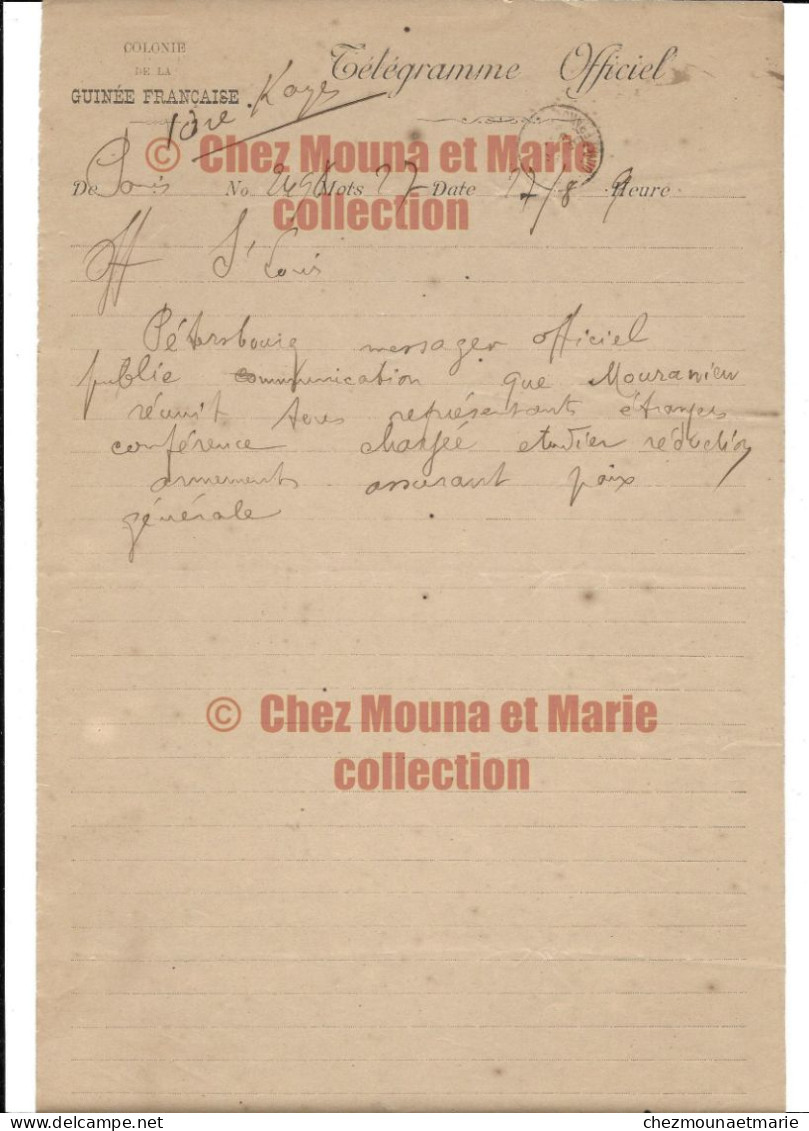 COLONIE
DE LA
GUINÉE FRANÇAISE
Télégramme Officiel
Kayes
© Chez Mouna et Marie
collection
De Paris No Mots 27 Date 27/8 Heure
Off St Louis
Pétersbourg messager officiel
publie communication que Mouraview
réunit tous représentants étrangers
conférence chargée etudier réduction
armements assurant paix
générale
© Chez Mouna et Marie
collection
chezmounaetmarie